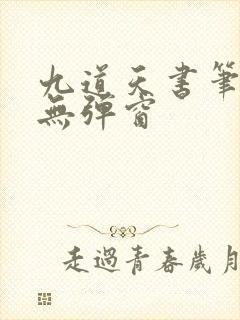 九道天書筆
無彈窗
走過青春歲月